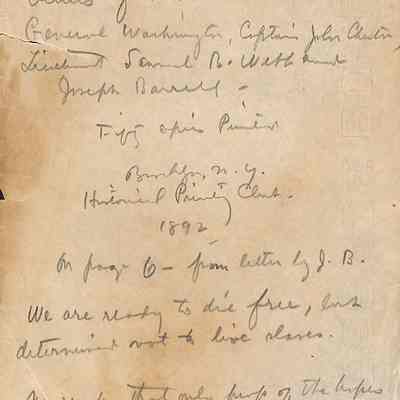 General Washington, Captain John Chester,
Lieutenant Samuel B. Webb and
Joseph Barrell -
Fifty copies Printed
Brooklyn, N. Y.
Historical Printing Club.
1892
On page 6 - from letter by J. B.
We are ready to die free, but
determined not to live slaves.
that only prop of the hopes